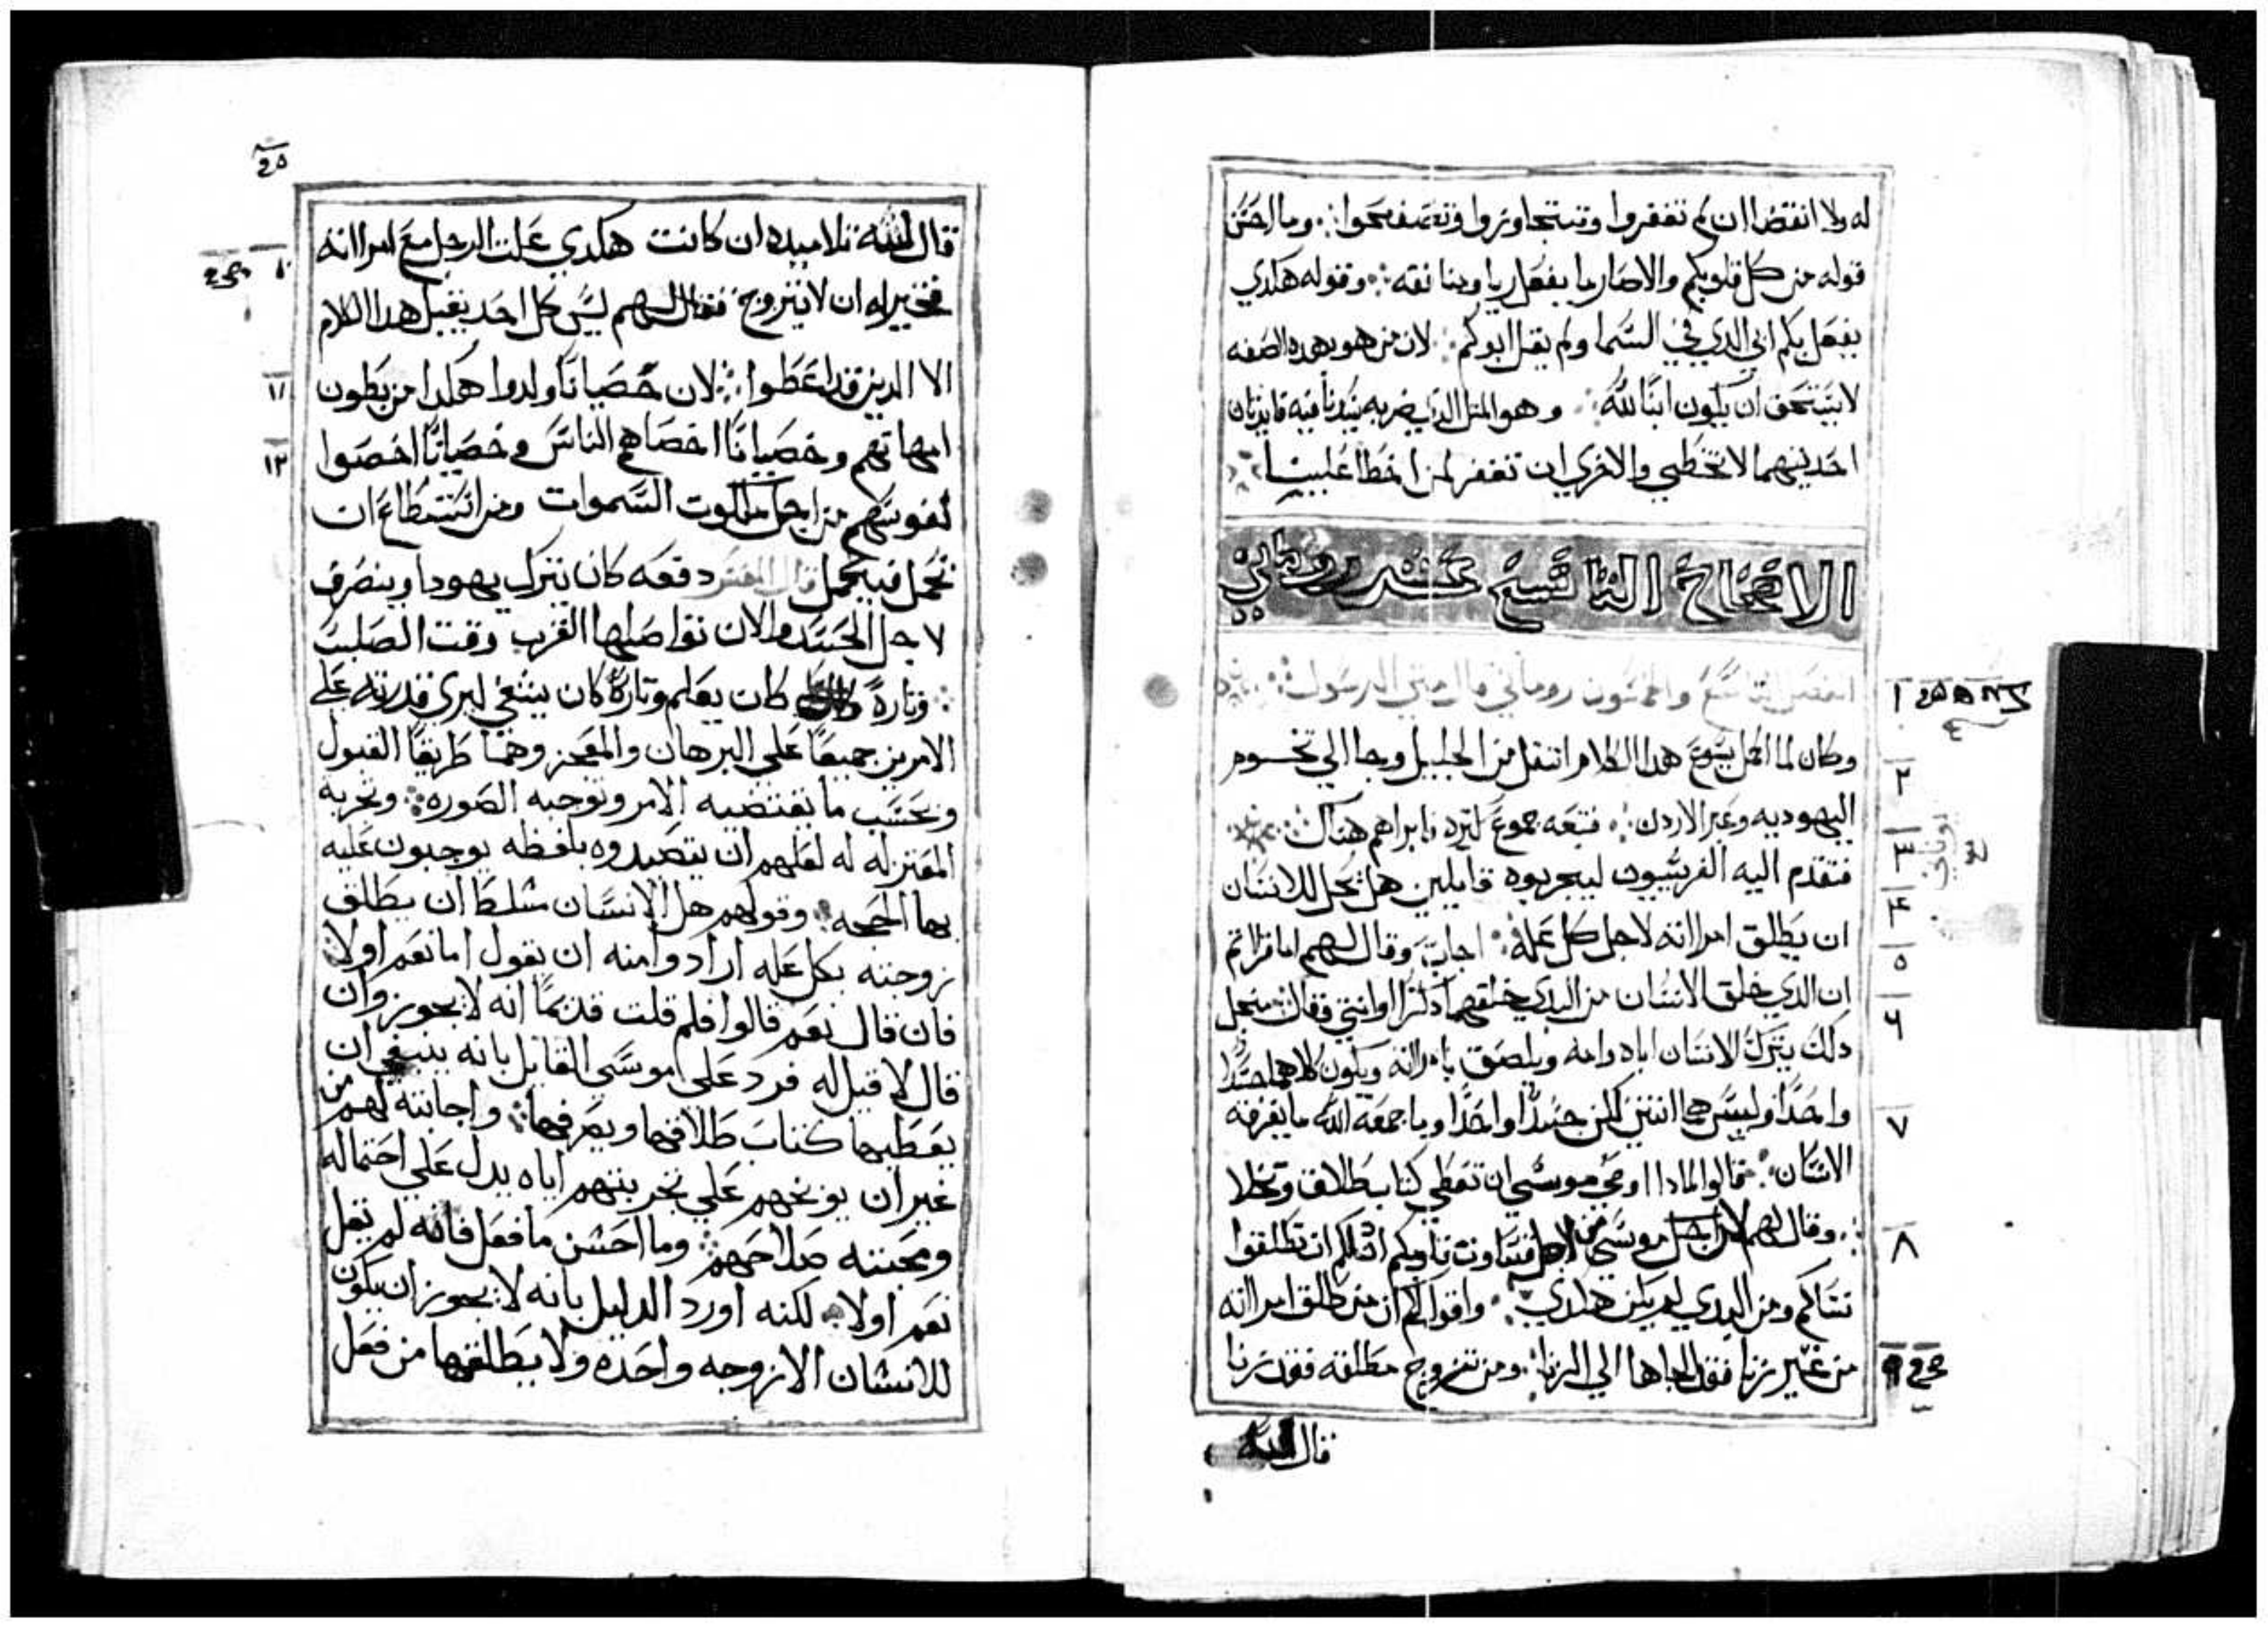 له ولا انتقضا ان لم تغفروا وتتجاوزوا وتصفحوا وما احسن
قوله من كل قلوبكم والا صار ما يفعل ريا ومنافقه وقوله هكدي
يفعل بكم ابي الدي في السما ولم يقل ابوكم لان من هو بهده الصفه
لا يستحق ان يكون ابنًا لله وهو المتل الدي ضربه سيدنا فيه فايدتان
احديهما لا تخطي والاخري ان تغفر لمن اخطا عليك
الاصحاح التاسع عشر روماني
الفصل التاسع والخمسون روماني قال متي الرسول
وكان لما اكمل يسوع هدا الكلام انتقل من الجليل وجا الي تخوم
اليهوديه وعبر الاردن فتبعه جموع كتيره فابراهم هناك
فتقدم اليه الفريسيون ليجربوه قايلين هل يحل للانسان
ان يطلق امراته لاجل كل عله اجاب وقال لهم اما قراتم
ان الدي خلق الانسان من البدي خلقهما دكرًا وانتي وقال من اجل
دلك يترك الانسان اباه وامه ويلصق بامراته ويكون كلاهما جسدًا
واحدًا وليس هما اتنين لكن جسدًا واحدًا وما جمعه الله ما يفرقه
الانسان قالوا لمادا اوصي موسي ان تعطي كتاب طلاق وتخلا
وقال لهم موسي من اجل قساوت قلوبكم ادن لكم ان تطلقوا
نساكم ومن البدي لم يكن هكدي واقول لكم ان من طلق امراته
من غير زنا فقد الجاها الي الزنا ومن تزوج مطلقه فقد زنا
قال له
١
٢
٣
٤
٥
٦
٧
٨
٩
قال له تلاميده ان كانت هكدي علت الرجل مع امراته
فخير له ان لا يتزوج فقال لهم ليس كل احد يقبل هدا الكلام
الا الدين قد اعطوا لان خصيانًا ولدوا هكدا من بطون
امهاتهم وخصيانًا اخصاهم الناس وخصيانًا اخصوا
نفوسهم من اجل ملكوت السموات ومن استطاع ان
يحمل فيحمل قال المفسر دفعه كان يترك يهودا وينصرف
لاجل الحسد والان تواصلها لقرب وقت الصلبت
وتارةً كان يعلم وتارةً كان يشفي ليري قدرته علي
الامرين جميعًا علي البرهان والمعجز وهما طريقا القبول
وبحسب ما تقتضيه الامر وتوجبه الصوره وتجربه
المعتزله له لعلهم ان يتصيدوه بلفظه يوجبون عليه
بها الحجه وقولهم هل الانسان مسلط ان يطلق
زوجته بكل عله ارادوا منه ان يقول اما نعم او لا
فان قال نعم قالوا فلم قلت قديمًا انه لا يجوز وان
قال لا قيل له فرد علي موسي القايل بانه ينبغي ان
يعطيها كتاب طلاقها ويصرفها واجابته لهم من
غير ان يوبخهم علي تجربتهم اياه يدل علي احتماله
ومحبته صلاحهم وما احسن ما فعل فانه لم يقل
نعم او لا لكنه اورد الدليل بانه لا يجوز ان يكون
للانسان الا زوجه واحده ولا يطلقها من فعل
١٠
١١
١٢